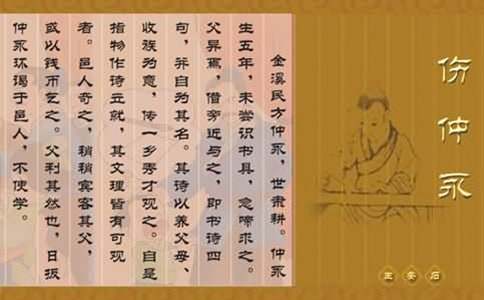 伤仲永
王安石
金溪民方仲永，世隶耕。仲永
生五年，未尝识书具，忽啼求之。
父异焉，借旁近与之，即书诗四
句，并自为其名。其诗以养父母、
收族为意，传一乡秀才观之。自是
指物作诗立就，其文理皆有可观
者。邑人奇之，稍稍宾客其父，
或以钱币乞之。父利其然也，日扳
仲永环谒于邑人，不使学。